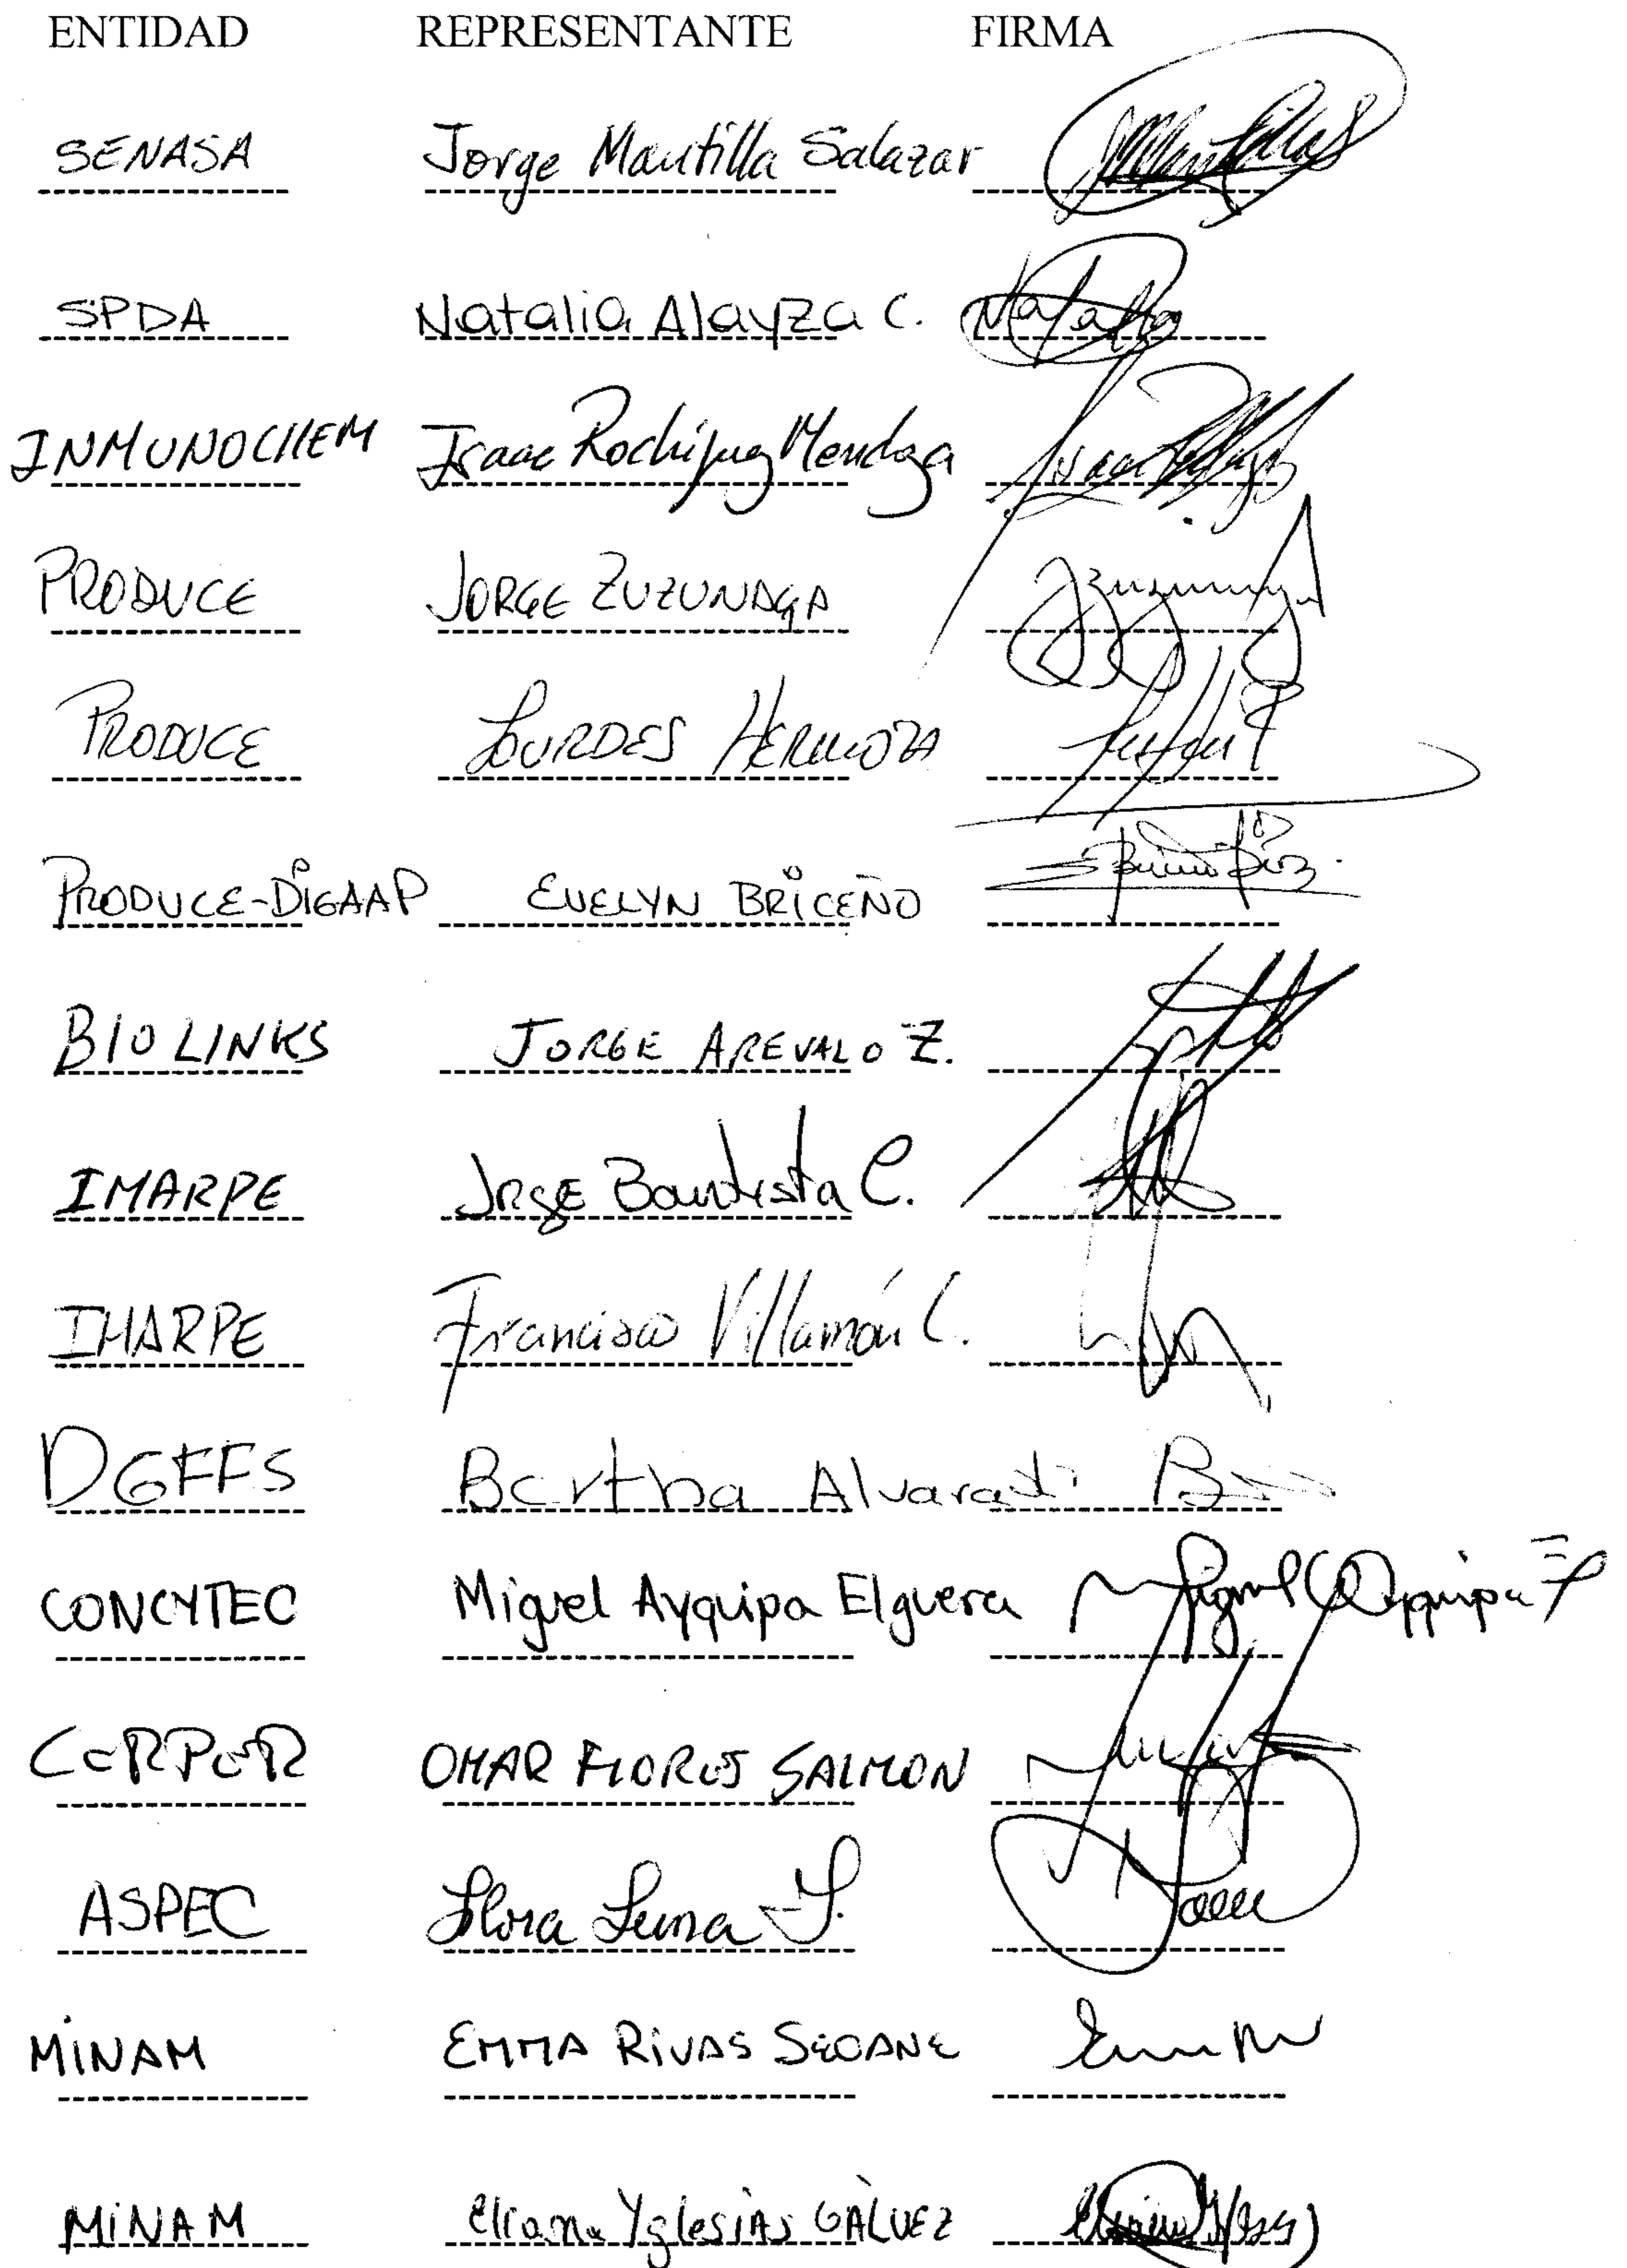 ENTIDAD REPRESENTANTE FIRMA
SENASA Jorge Mantilla Salazar
SPDA Natalia Alayza C.
INMUNOCHEM Isaac Rodríguez Mendoza
PRODUCE JORGE ZUZUNAGA
PRODUCE LOURDES HERMOZA
PRODUCE-DIGAAP EVELYN BRICEÑO
BIO LINKS JORGE AREVALO Z.
IMARPE JORGE Bautista C.
IMARPE Francisco Villamón C.
DGFFS Bertha Alvarado
CONCYTEC Miguel Ayquipa Elguera
CERPER OMAR FLORES SALMON
ASPEC Flora Luna
MINAM EMMA RIVAS SEOANE
MINAM Eliana Yglesias GÁLVEZ